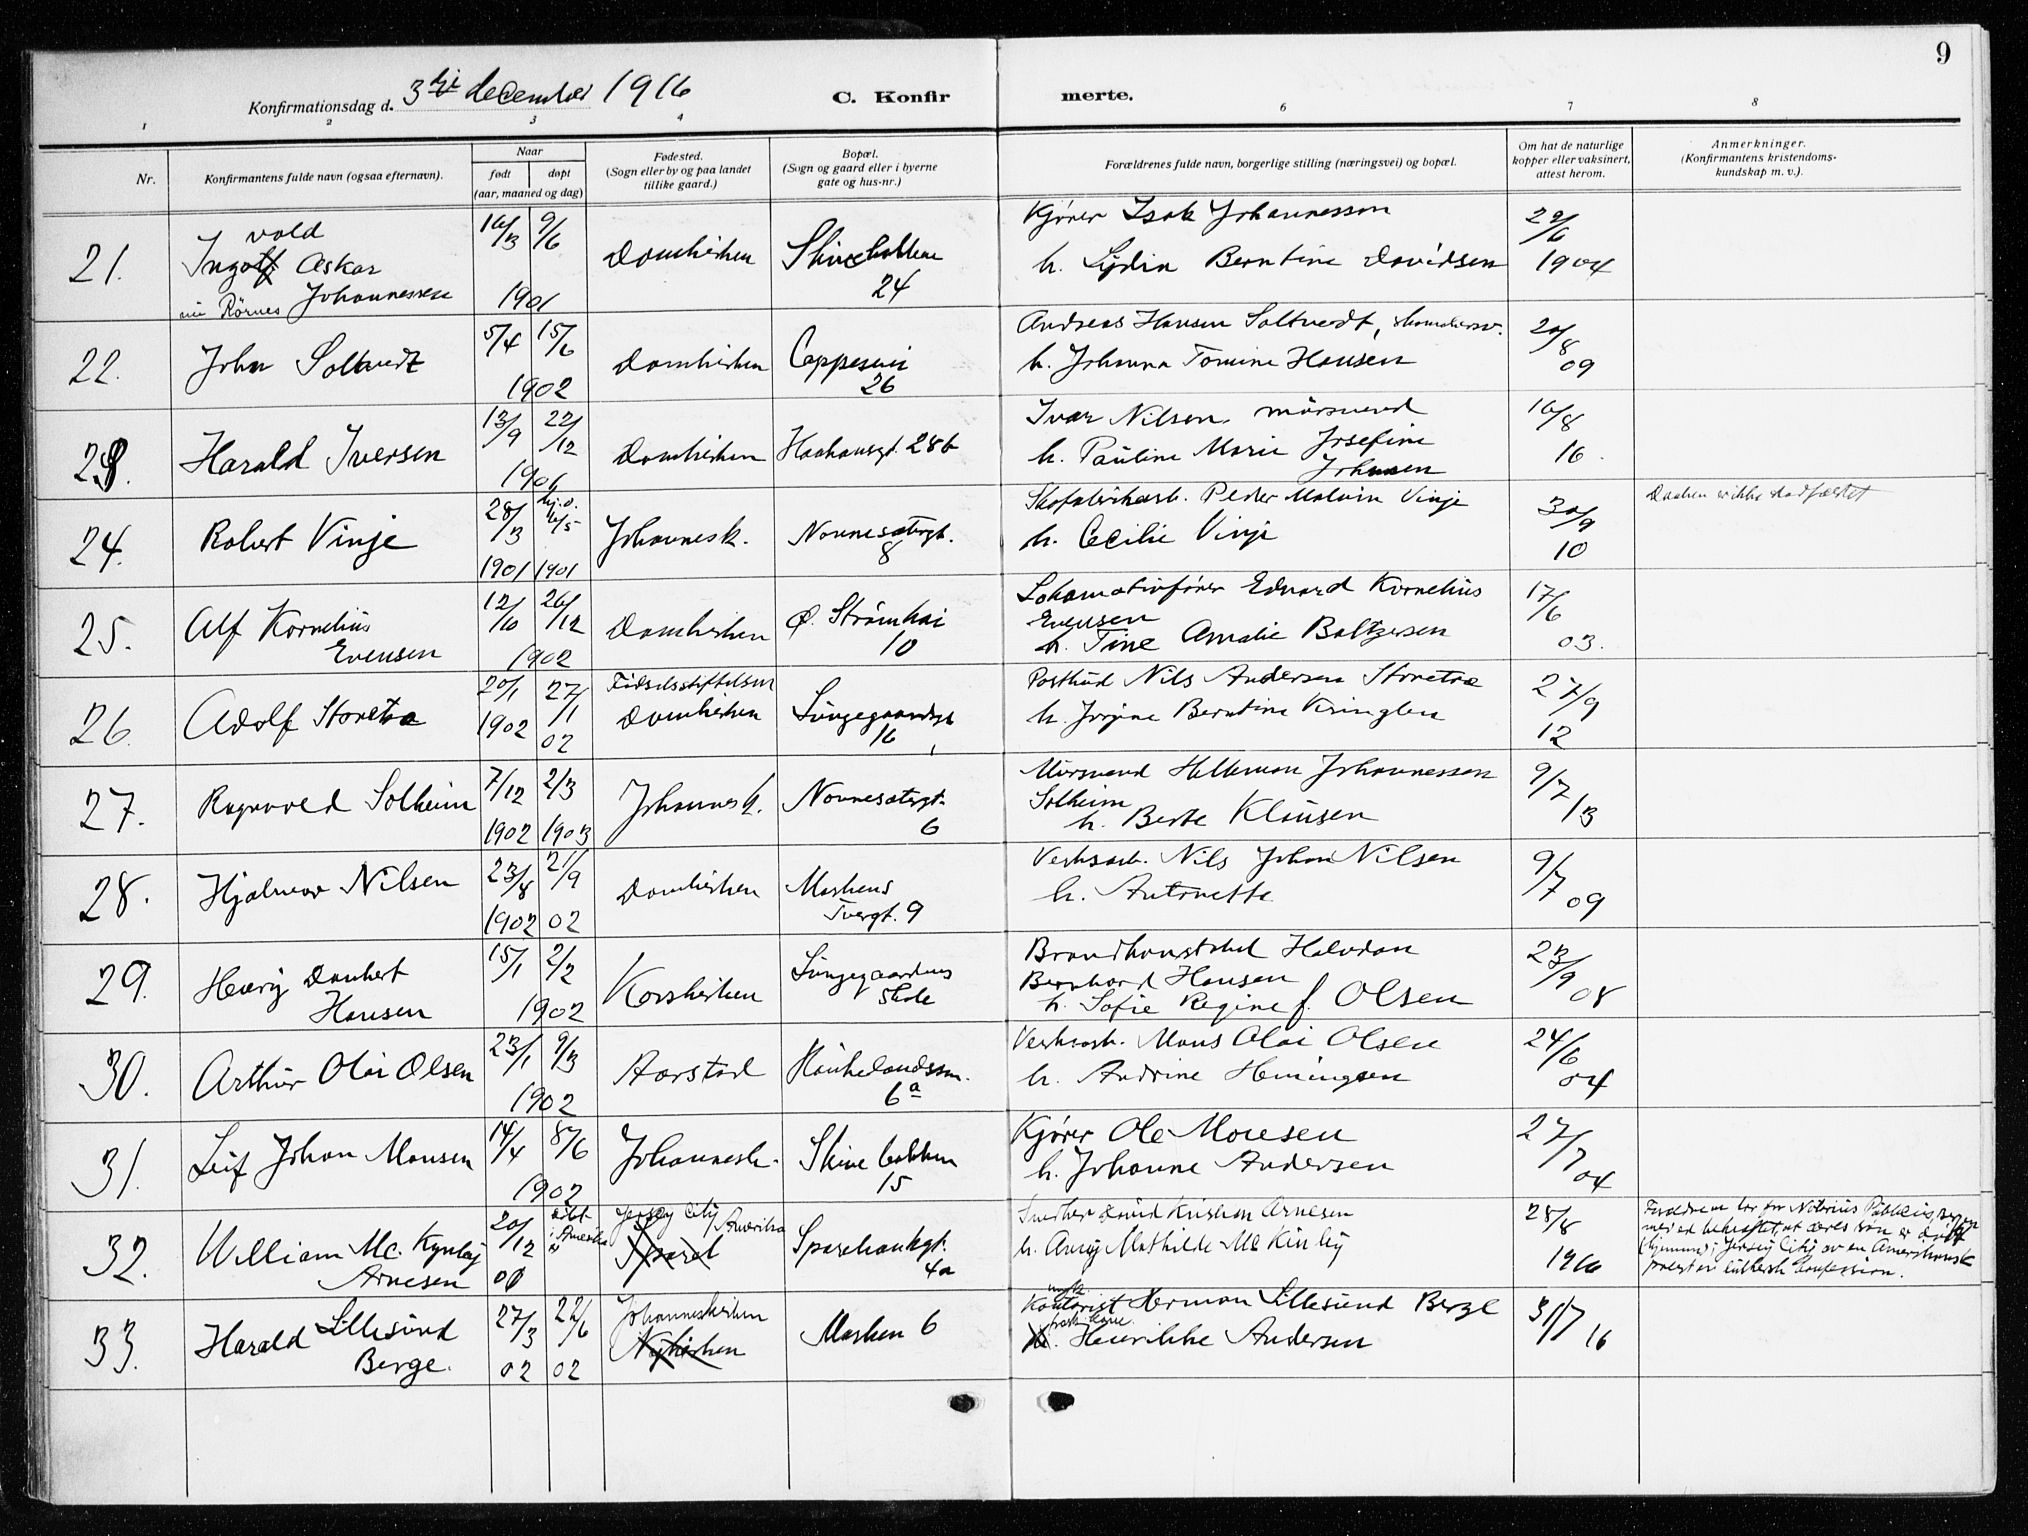 9
Konfirmationsdag d. 3die december 1916
C. Konfirmerte.
1 2 3 4 6 7 8
Nr.
Konfirmantens fulde navn (ogsaa efternavn).
Naar
født
døpt
(aar, maaned og dag)
Fødested.
(Sogn eller by og paa landet
tillike gaard.)
Bopæl.
(Sogn og gaard eller i byerne
gate og hus-nr.)
Forældrenes fulde navn, borgerlige stilling (næringsvei) og bopæl.
Om hat de naturlige
kopper eller vaksinert,
attest herom.
Anmerkninger.
(Konfirmantens kristendoms-
kundskap m. v.).
21. Ingolf vold Oskar Johannessen
Rørnes
16/3 9/6 1901
Domkirken
Skivebakken 24
Kjører Isak Johannesson
h. Lydia Berntine Davidsen
29/6 1904
22. John Soltvedt
5/4 15/6 1902
Domkirken
Cappesvei 26
Andreas Hansen Soltvedt,
h. Johanna Tomine Hansen
20/8 09
23. Harald Iversen
13/9 22/12 1901
Domkirken
Haakonsgt. 28b
Ivar Nilsen, mursvend
h. Pauline Marie Josefine
Johnsen
16/8 16.
24. Robert Vinje
28/3 1901 hj.d. 16/5 1901
Johannesk.
Nonnesætergt. 8
Skofabrikarb. Peder Malvin Vinje
h. Cecilie Vinje
30/9 10
Daaben er ikke stadfæstet
25. Alf Kornelius
Evensen
12/10 26/12 1902
Domkirken
Ø. Strømkai 10
Lokomotivfører Edvard Kornelius
Evensen
h. Tine Amalie Baltzersen
17/6 03.
26. Adolf Storetræ
20/1 1902 27/1 02
Fødselsstiftelsen
Domkirken
Lungegaardsgt 16
Postbud Nils Andersen Storetræ
h. Jørgine Berntine
27/9 12
27. Ragnvald Solheim
7/12 1902 2/3 1903
Johannesk.
Nonnesætergt. 6
Mursvend Helleman Johannessen
Solheim
h. Berte Klausen
9/7 13
28. Hjalmar Nilsen
23/8 1902 21/9 02
Domkirken
Markens
Tvergt. 9
Verksarb. Nils Johan Nilsen
h. Antonette
9/7 09
29. Henry Dankert
Hansen
15/1 2/2 1902
Korskirken
Lungegaardens
skole
Brandkonstabel Halvdan
Bernhard Hansen
h. Sofie Regine f. Olsen
23/9 08
30. Arthur Olai Olsen
23/1 9/3 1902
Aarstad
Haukelandssm. 6a
Verksarb. Mons Olai Olsen
h. Andrine Henningsen
24/6 04
31. Leif Johan Monsen
14/4 8/6 1902
Johannesk.
Skivebakken 15
Kjører Ole Monsen
h. Johanne Andersen
27/7 04
32. William Mc. Kynley
Arnesen
20/12 01
døbt i Amerika
Jersey City Amerika
Sparebankgt. 4a
Snedker David Kristian Arnesen
h. Anny Mathilde Mc Kinley
28/8 1916
Forældrene har for Notarius Publicus, Bergen
med ed bekræftet, at deres søn er døbt
(hjemme) i Jersey City av en Amerikansk
prest av luthersk konfession.
33. Harald Lillesund
Berge.
27/3 02 22/6 02
Johanneskirken
Nykirken
Marken 6
Kontorist Herman Lillesund Berge
h. Henrikke Andersen
31/7 16